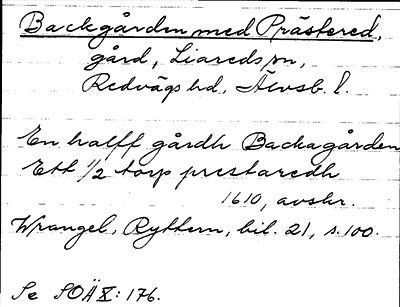 Backgården med Prästered,
gård, Liareds sn,
Redvägs hd., Älvsb. l.
En halff gårdh Backagården
Ett 1/2 torp prestaredh
1610, avskr.
Wrangel, Ryttern, bil. 21, s. 100.
Se SOÄ X: 176.